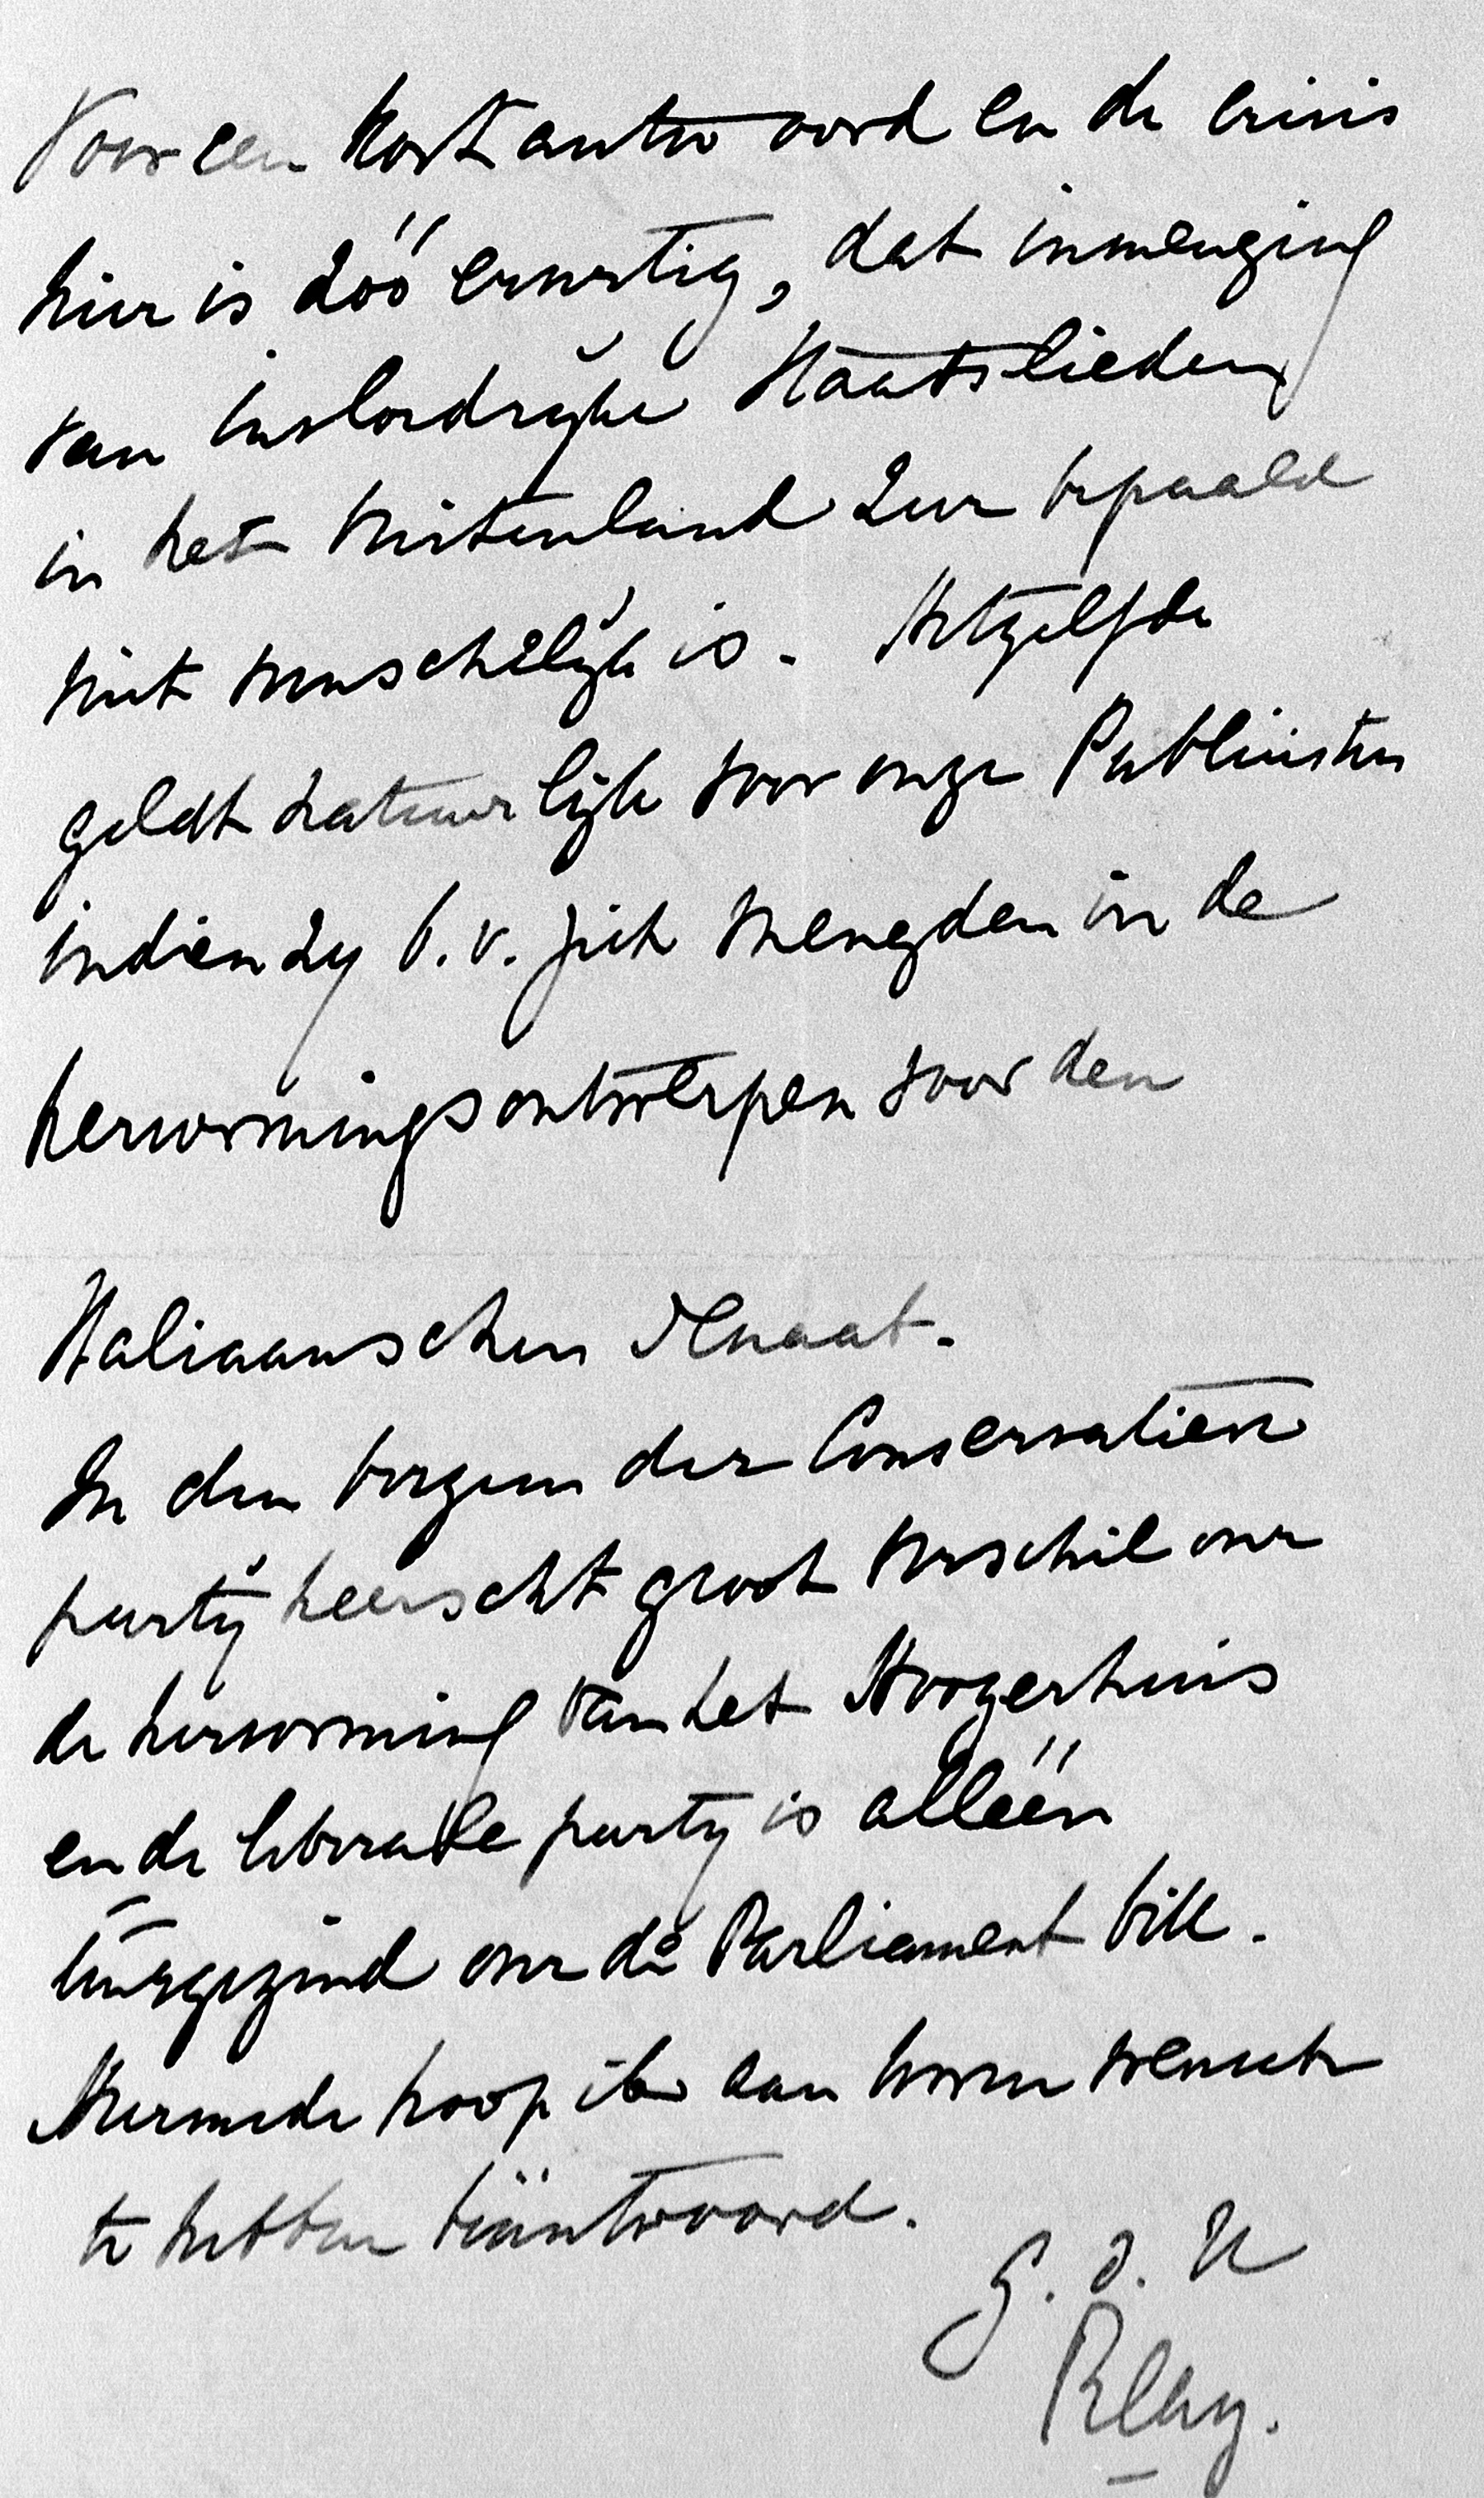 voor een kort antwoord en de crisis
hier is zóó ernstig, dat inmenging
van invloedrijke Staatslieden
in het buitenland zeer bepaald
niet wenschelijk is. Hetzelfde
geldt natuurlijk voor onze Publicisten
indien zy b.v. zich mengden in de
hervormingsontwerpen voor den
Italiaanschen Senaat.
In den boezem der Conservatieve
partij heerscht groot verschil over
de hervorming van het Hoogerhuis
en de liberale party is alléén
eensgezind over de Parliament bill.
Hiermede hoop ik aan Uwen wensch
te hebben beäntwoord.
Reay.